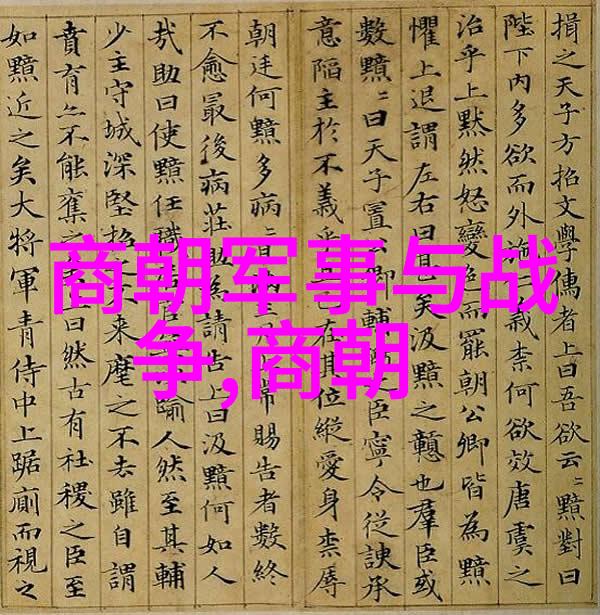 商朝军事与战
争,商朝
揖之天子方招文學儒者上曰吾欲云〻黯對曰
陛下內多欲而外施仁義柰何欲效唐虞之
治乎上黙然怒變色而罷朝公卿皆為黯
懼上退謂左右曰甚矣汲黯之戇也羣臣或
數黯〻曰天子置公卿輔弼之臣寧令從諛承
意陷主於不義乎且在其位縱愛身柰辱
朝廷何黯多病〻且滿三月常賜告者數終
不愈最後病莊助為請告上曰汲黯何如人
哉助曰使黯任職居官踰人然至其輔
少主守城深堅招之不來麾之不去雖自謂
賁育亦不能奪之曰然古有社稷之臣至
如黯近之矣大將軍青侍中上踞廁而視之